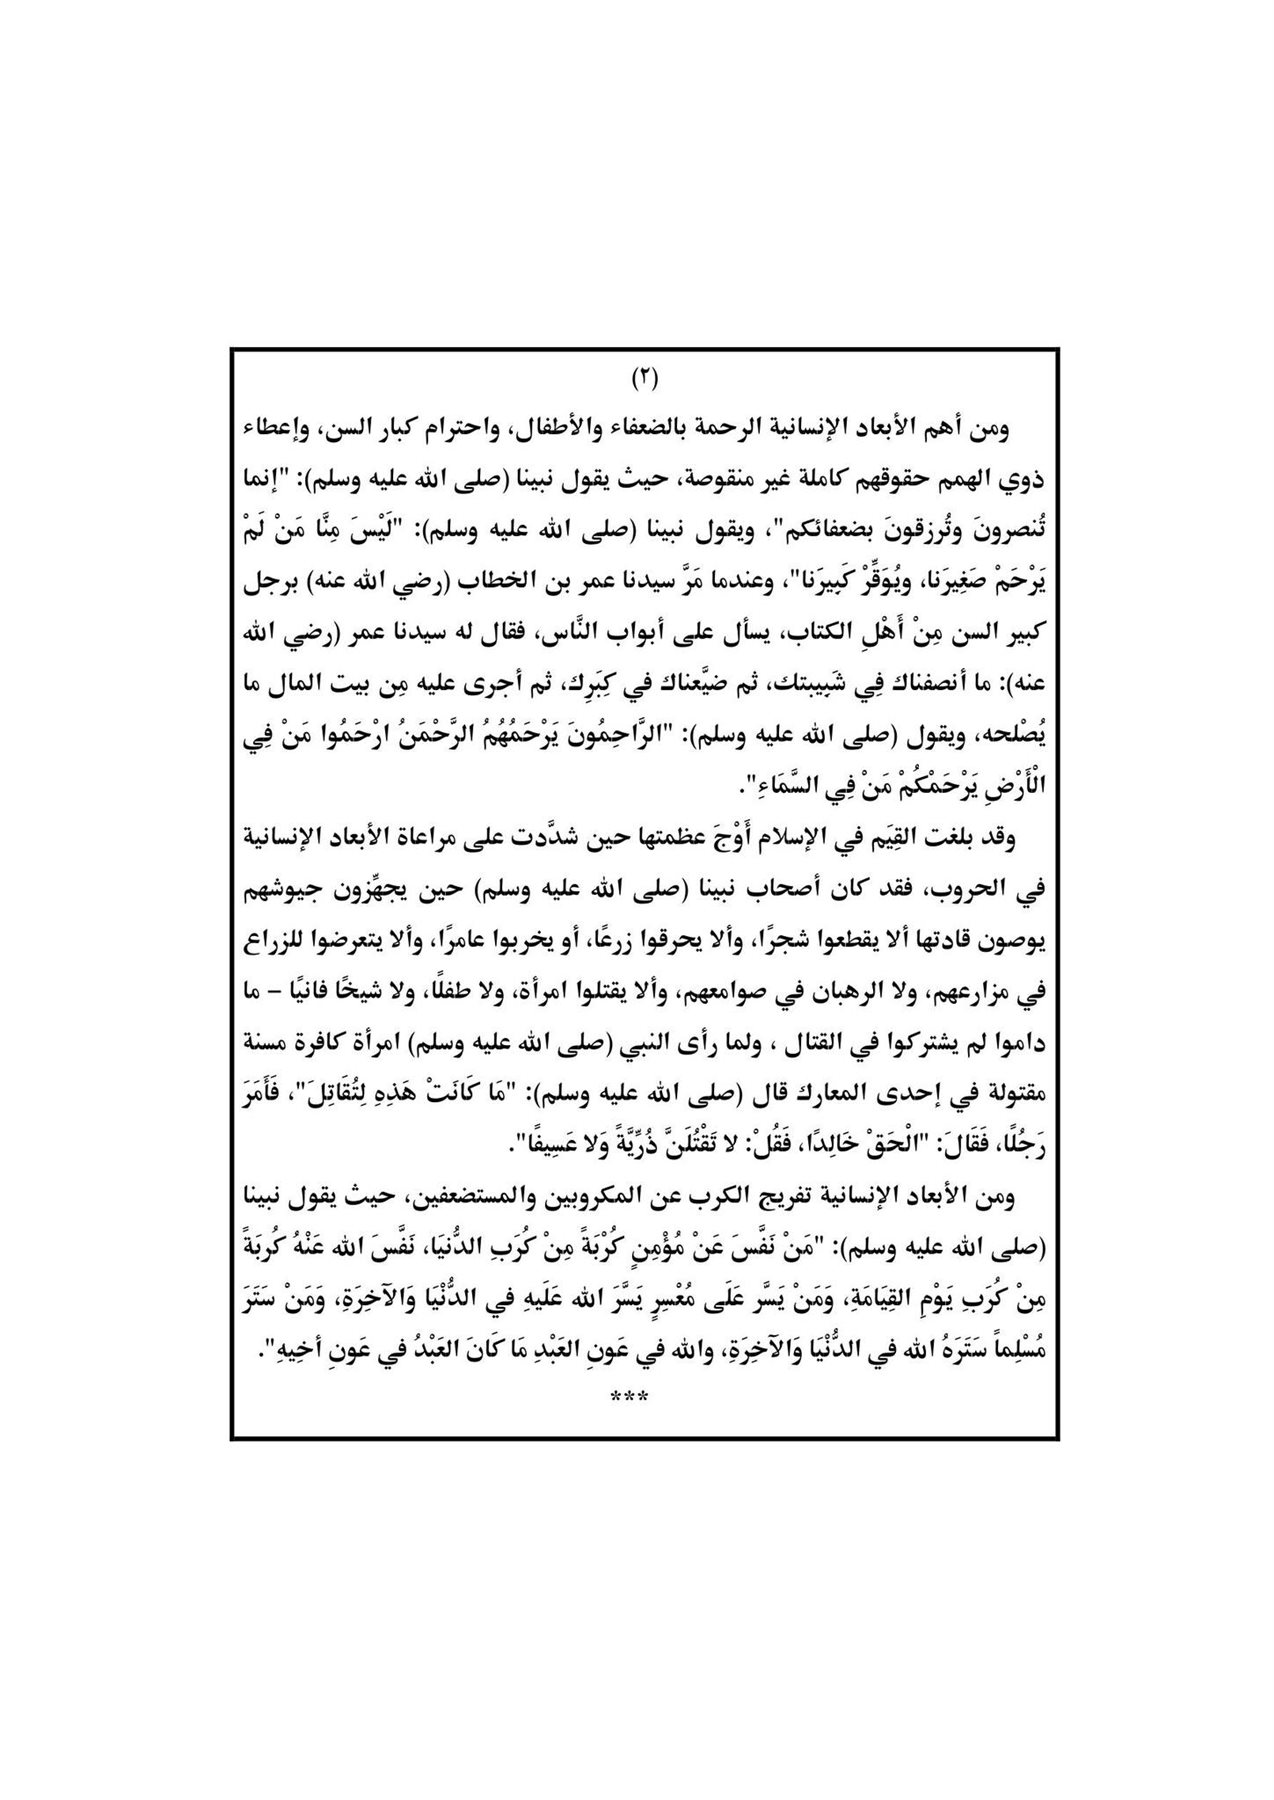 (٢)
ومن أهم الأبعاد الإنسانية الرحمة بالضعفاء والأطفال، واحترام كبار السن، وإعطاء
ذوي الهمم حقوقهم كاملة غير منقوصة، حيث يقول نبينا (صلى الله عليه وسلم): "إنما
تُنصرونَ وتُرزقونَ بضعفائكم"، ويقول نبينا (صلى الله عليه وسلم): "لَيْسَ مِنَّا مَنْ لَمْ
يَرْحَمْ صَغِيرَنا، ويُوَقِّرْ كَبِيرَنا"، وعندما مَرَّ سيدنا عمر بن الخطاب (رضي الله عنه) برجل
كبير السن مِنْ أَهْلِ الكتاب، يسأل على أبواب النَّاس، فقال له سيدنا عمر (رضي الله
عنه): ما أنصفناك فِي شَبِيبتك، ثم ضيَّعناك في كِبَرِك، ثم أجرى عليه مِن بيت المال ما
يُصْلحه، ويقول (صلى الله عليه وسلم): "الرَّاحِمُونَ يَرْحَمُهُمُ الرَّحْمَنُ ارْحَمُوا مَنْ فِي
الْأَرْضِ يَرْحَمْكُمْ مَنْ فِي السَّمَاءِ".
وقد بلغت القِيَم في الإسلام أَوْجَ عظمتها حين شدَّدت على مراعاة الأبعاد الإنسانية
في الحروب، فقد كان أصحاب نبينا (صلى الله عليه وسلم) حين يجهِّزون جيوشهم
يوصون قادتها ألا يقطعوا شجرًا، وألا يحرقوا زرعًا، أو يخربوا عامرًا، وألا يتعرضوا للزراع
في مزارعهم، ولا الرهبان في صوامعهم، وألا يقتلوا امرأة، ولا طفلًا، ولا شيخًا فانيًا – ما
داموا لم يشتركوا في القتال ، ولما رأى النبي (صلى الله عليه وسلم) امرأة كافرة مسنة
مقتولة في إحدى المعارك قال (صلى الله عليه وسلم): "مَا كَانَتْ هَذِهِ لِتُقَاتِلَ"، فَأَمَرَ
رَجُلًا، فَقَالَ: "الْحَقْ خَالِدًا، فَقُلْ: لا تَقْتُلَنَّ ذُرِّيَّةً وَلا عَسِيفًا".
ومن الأبعاد الإنسانية تفريج الكرب عن المكروبين والمستضعفين، حيث يقول نبينا
(صلى الله عليه وسلم): "مَنْ نَفَّسَ عَنْ مُؤْمِنٍ كُرْبَةً مِنْ كُرَبِ الدُّنيَا، نَفَّسَ الله عَنْهُ كُربَةً
مِنْ كُرَبِ يَوْمِ القِيَامَةِ، وَمَنْ يَسَّر عَلَى مُعْسِرٍ يَسَّرَ الله عَلَيهِ في الدُّنْيَا وَالآخِرَةِ، وَمَنْ سَتَرَ
مُسْلِماً سَتَرَهُ الله في الدُّنْيَا وَالآخِرَةِ، والله في عَونِ العَبْدِ مَا كَانَ العَبْدُ في عَونِ أخِيهِ".
***